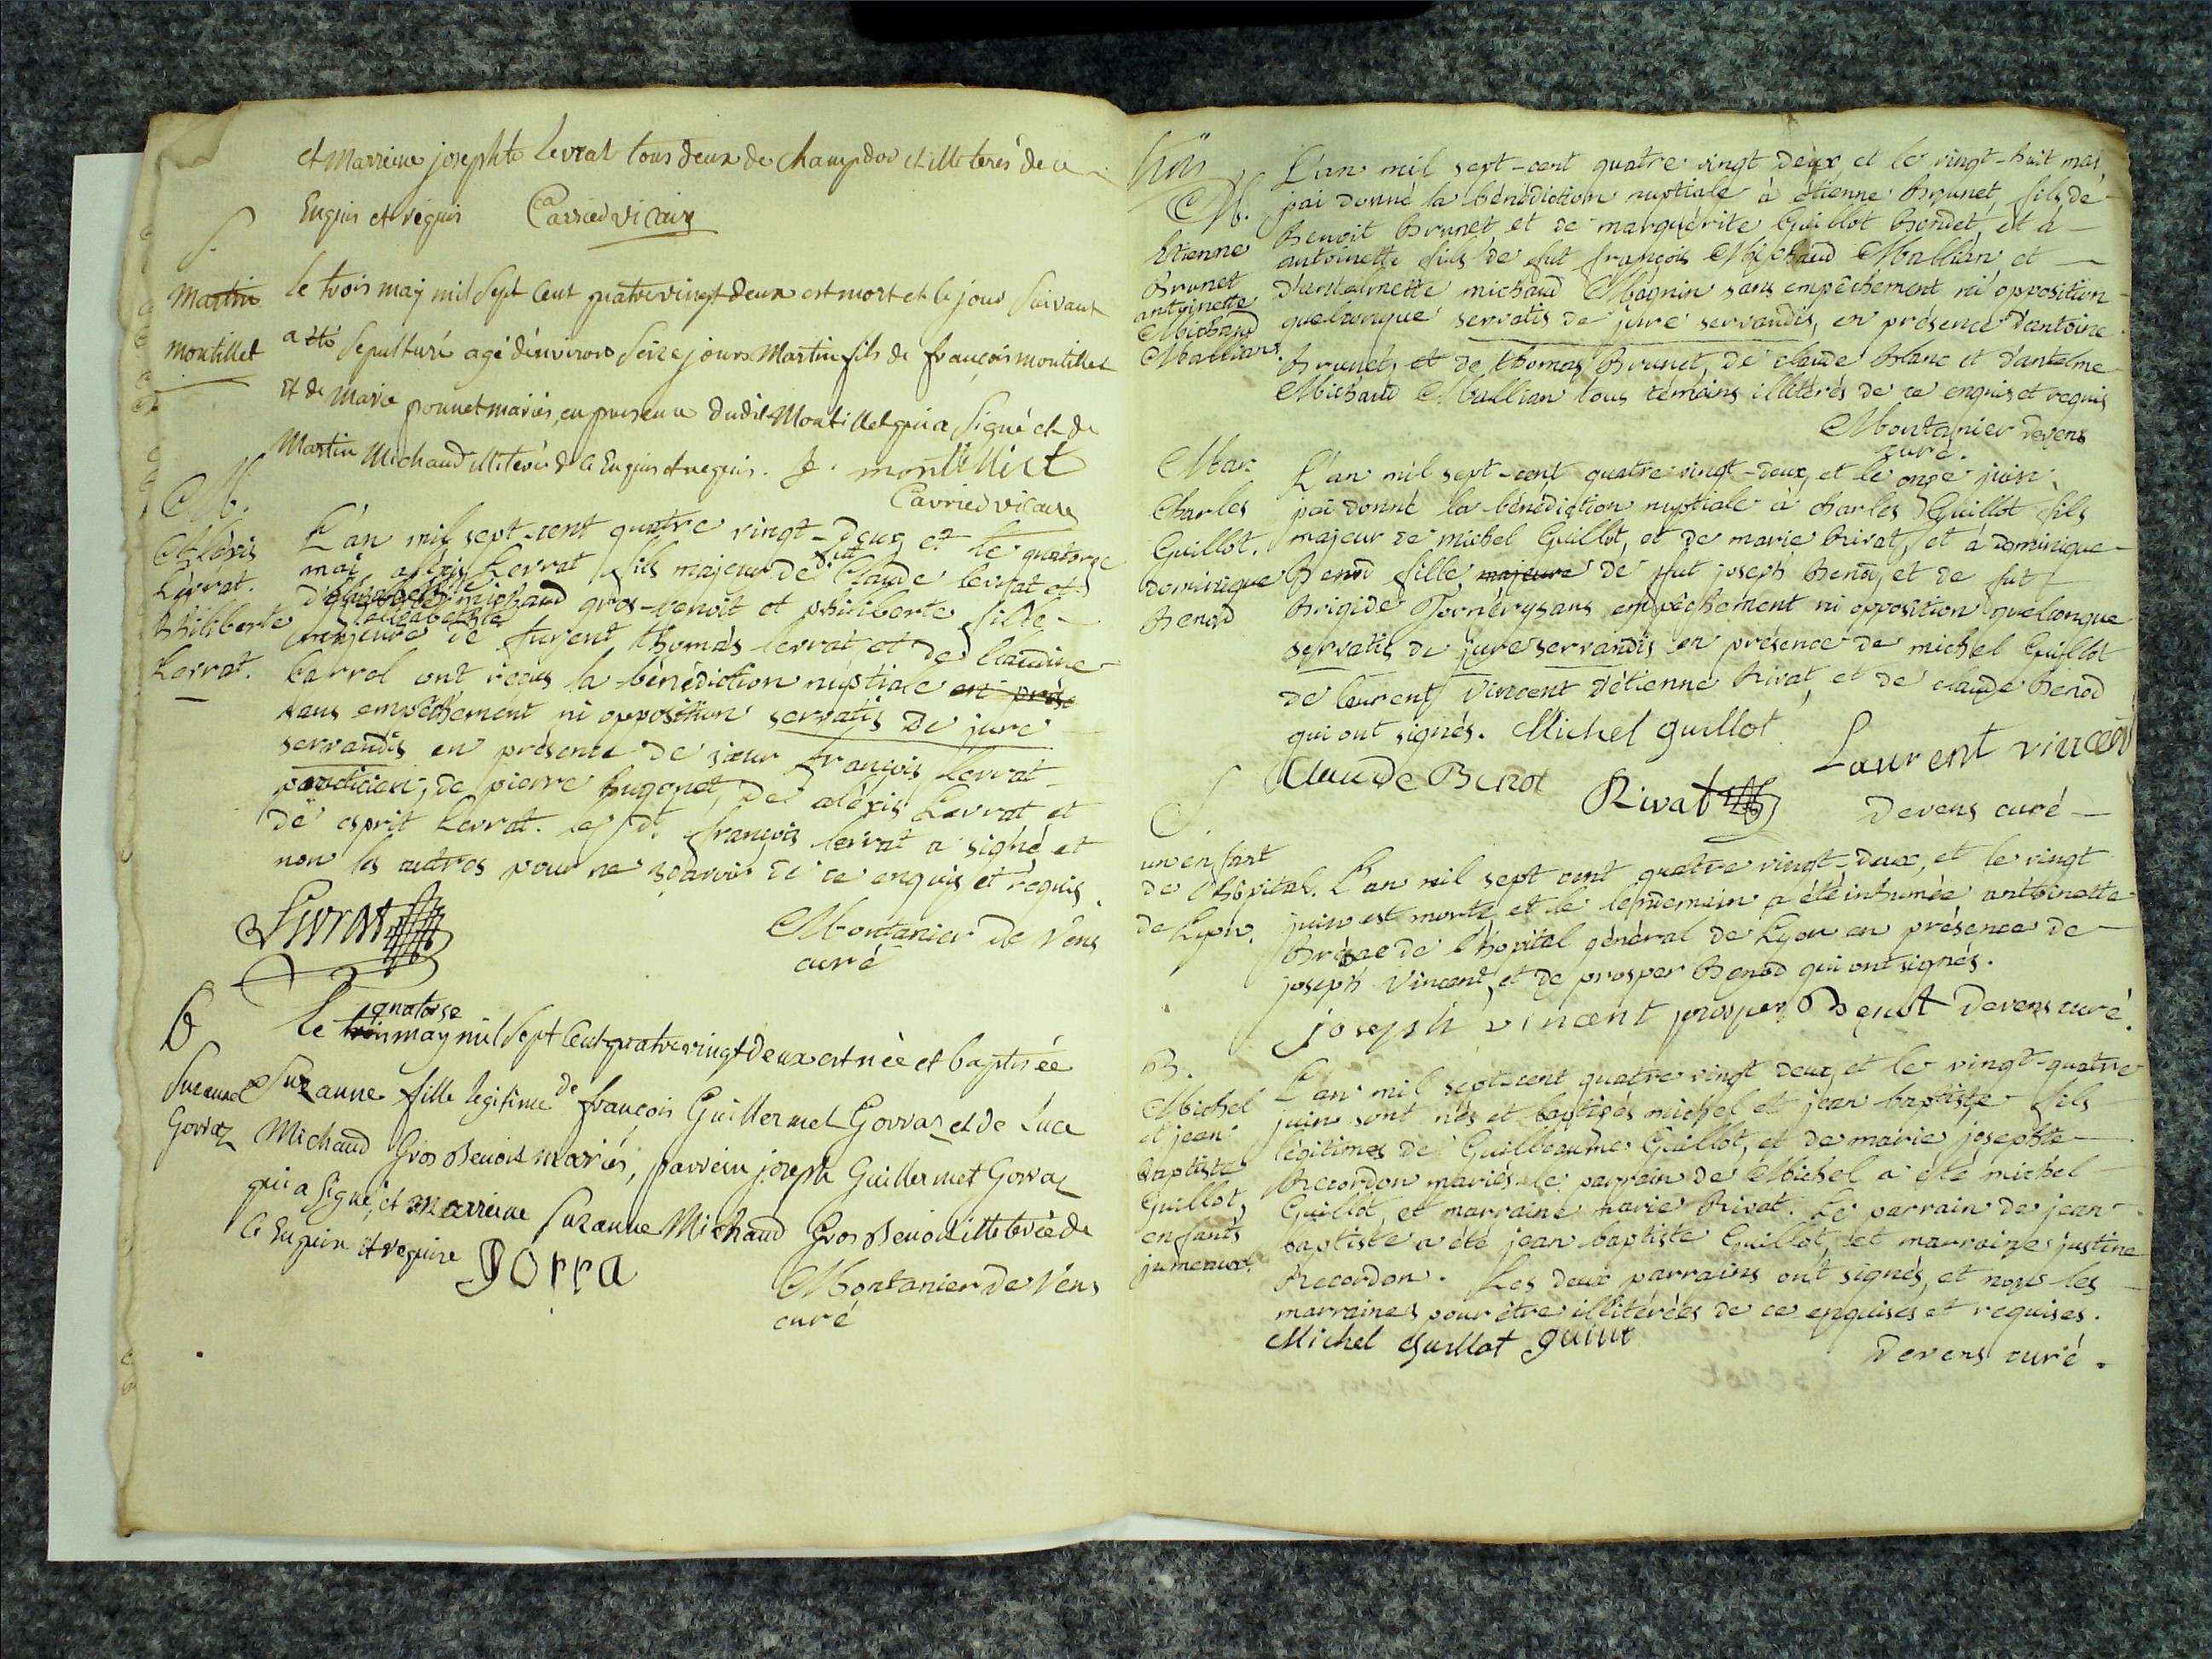 et marreine josephte Levrat tous deux de champdor et illiterés de ce
Enquis et requis Carrier vicaire
S.
Martin
montillet
Le trois may mil Sept Cent quatre vingt deux est mort et le jour Suivant
a été Sepulturé agé d'environ Seize jours Martin fils de françois montillet
et de Marie ponnet mariés, en presence dudit Montillet qui a Signé et de
Martin Michaud illiteré de ce Enquis et requis. f. montilliet
Carrier vicaire
M.
Aléxis
Levrat.
Philiberte
Levrat.
L'an mil sept-cent quatre vingt-deux et le quatorze
mai aléxis Levrat fils majeur de fut Claude levrat et
d'élizabethe michaud gros-benoit et philiberte fille
majeure de furent thomas levrat et de claudine
Carrel ont reçus la bénédiction nuptiale en prése
sans empêchement ni opposition servatis de jure
servandis en présence de sieur françois levrat
praticien, de pierre hugonet, de aléxis Levrat et
de esprit Levrat. le dt. françois levrat a signé et
non les autres pour ne sçavoir de ce enquis et requis.
Livrat
Montanier de Vens
curé
B
Suzanne
Gorraz
quatorse
Le trois may mil Sept Cent quatre vingt deux est née et baptisée
Suzanne fille legitime de françois Guillermet Gorraz et de Luce
Michaud Gros Benoit mariés, parrein joseph Guillermet Gorraz
qui a Signé, et marreine Suzanne Michaud Gros Benoit illiterée de
ce Enquise et requise gorra
Montanier de Vens
curé
huit
M.
Etienne
Brunet
antoinette
Michaud
Mallian.
L'an mil sept-cent quatre vingt deux et le vingt-huit mai,
jai donné la bénédiction nuptiale à étienne Brunet, fils de
Benoit Brunet et de marguérite Guillot Bondet, et à
antoinette fille de fut françois Michaud Mallian et
d'antoinette michaud Magnin sans empêchement ni opposition
quelconque servatis de jure servandis, en présence d'antoine
Brunet, et de thomas Brunet, de claude Blanc et d'antelme
Michaud Mallian tous témoins illitérés de ce enquis et requis
Montanier devens
curé.
Mar.
Charles
Guillot.
Dominique
Benod
L'an mil sept-cent quatre vingt-deux, et le onze juin,
jai donné la bénédiction nuptiale à charles Guillot fils
majeur de michel Guillot, et de marie Rivat, et à dominique
Benod fille majeure de fut joseph Benod, et de fut
Brigide Tornery sans empêchement ni opposition quelconque
servatis de jure servandis en présence de michel Guillot
de laurent Vincent d'étienne Rivat, et de claude Benod
qui ont signés. Michel guillot
Laurent vincent
Claude Benot Rivat
Devens curé
S
un enfant
de l'hôpital
de Lyon.
L'an mil sept cent quatre vingt-deux, et le vingt
juin est morte, et le lendemain a été inhumée antoinette
de l'hopital général de Lyon en présence de
joseph Vincent, et de prosper Benod qui ont signés.
joseph vincent prosper Benot Devens curé.
B.
Michel
et jean
baptiste
Guillot,
enfants
jumeaux.
L'an mil sept-cent quatre vingt deux, et le vingt-quatre
juin sont nés et baptisés michel et jean baptiste fils
légitimes de Guilleaume Guillot, et de marie josephte
Recordon mariés. le parrain de Michel a été michel
Guillot, et marraine marie Rivat. Le parrain de jean
baptiste a été jean baptiste Guillot, et marraine justine
Recordon. Les deux parrains ont signés, et non les
marraines pour être illitérées de ce enquises et requises.
Michel guillot guillot
Devens curé.